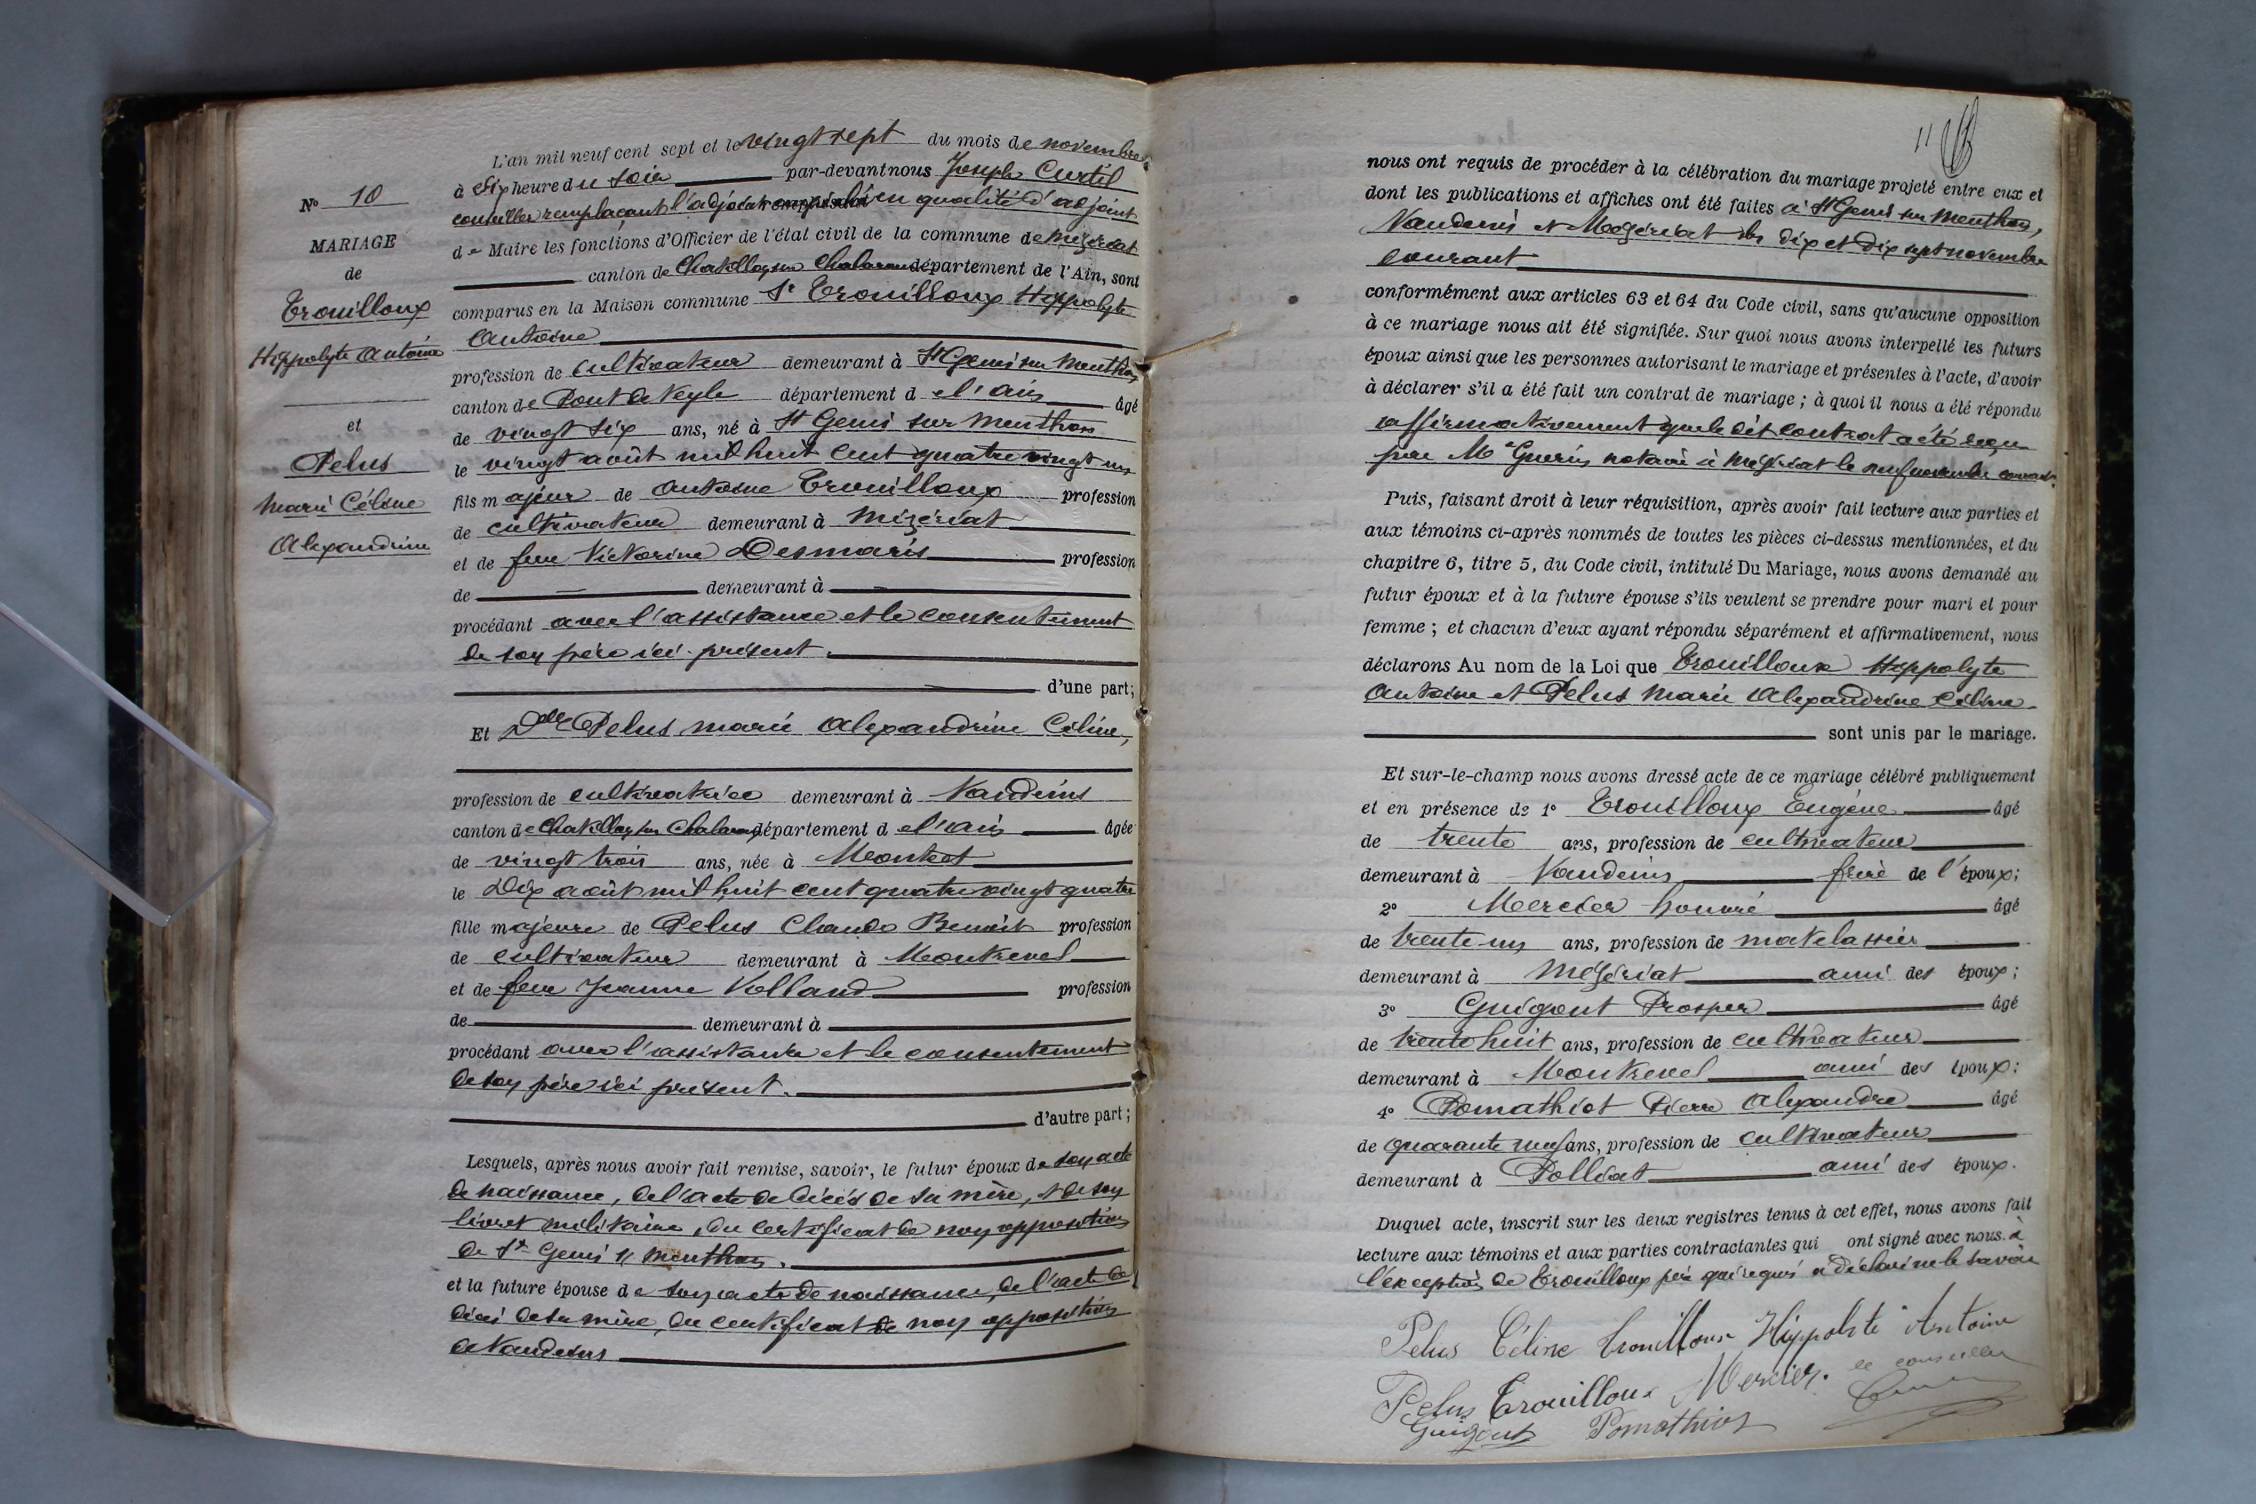 L'an mil neuf cent sept et le vingt sept du mois de novembre
à six heure du soir par-devant nous Joseph Curtil
conseiller remplaçant l'adjoint en qualité d'adjoint
de Maire les fonctions d'Officier de l'état civil de la commune de Mézériat
canton de Chatillon sur Chalaronne département de l'Ain, sont
comparus en la Maison commune Sr Trouilloux Hippolyte
Antoine
profession de cultivateur demeurant à St Genis sur Menthon
canton de Pont de Veyle département de l'ain âgé
de vingt six ans, né à St Genis sur Menthon
le vingt août mil huit cent quatre vingt un
fils majeur de Antoine Trouilloux profession
de cultivateur demeurant à Mézériat
et de feue Victorine Desmaris profession
de demeurant à
procédant avec l'assistance et le consentement
de son père ici présent.
d'une part;
Et Dlle Pelus Marie Alexandrine Céline,
profession de cultivatrice demeurant à Vandeins
canton de Chatillon sur Chalaronne département de l'ain âgée
de vingt trois ans, née à Montcet
le Dix août mil huit cent quatre vingt quatre
fille majeure de Pelus Claude Benoit profession
de cultivateur demeurant à Montrevel
et de feue Jeanne Volland profession
de demeurant à
procédant avec l'assistance et le consentement
de son père ici présent.
d'autre part;
Lesquels, après nous avoir fait remise, savoir, le futur époux de son acte
de naissance, de l'acte de décès de sa mère, et de son
livret militaire, du certificat de non opposition
de St Genis s/ Menthon.
et la future épouse de son acte de naissance, de l'acte de
décès de sa mère, du certificat de non opposition
de Vandeins
No 10
MARIAGE
de
Trouilloux
Hippolyte Antoine
et
Pelus
Marie Céline
Alexandrine
11
nous ont requis de procéder à la célébration du mariage projeté entre eux et
dont les publications et affiches ont été faites à St Genis sur Menthon,
Vandeins et Mézériat les dix et dix sept novembre
courant
conformément aux articles 63 et 64 du Code civil, sans qu'aucune opposition
à ce mariage nous ait été signifiée. Sur quoi nous avons interpellé les futurs
époux ainsi que les personnes autorisant le mariage et présentes à l'acte, d'avoir
à déclarer s'il a été fait un contrat de mariage ; à quoi il nous a été répondu
affirmativement que le dit contrat a été reçu
par Me Guerin notaire à Mézériat le neuf novembre courant.
Puis, faisant droit à leur réquisition, après avoir fait lecture aux parties et
aux témoins ci-après nommés de toutes les pièces ci-dessus mentionnées, et du
chapitre 6, titre 5, du Code civil, intitulé Du Mariage, nous avons demandé au
futur époux et à la future épouse s'ils veulent se prendre pour mari et pour
femme ; et chacun d'eux ayant répondu séparément et affirmativement, nous
déclarons Au nom de la Loi que Trouilloux Hippolyte
Antoine et Pelus Marie Alexandrine Céline
sont unis par le mariage.
Et sur-le-champ nous avons dressé acte de ce mariage célébré publiquement
et en présence de 1° Trouilloux Eugène âgé
de trente ans, profession de cultivateur
demeurant à Vandeins frère de l'époux;
2° Mercier honoré âgé
de trente un ans, profession de matelassier
demeurant à Mézériat ami des époux;
3° Guigout Prosper âgé
de trente huit ans, profession de cultivateur
demeurant à Montrevel ami des époux;
4° Pomathiot Pierre Alexandre âgé
de quarante neuf ans, profession de cultivateur
demeurant à Polliat ami des époux.
Duquel acte, inscrit sur les deux registres tenus à cet effet, nous avons fait
lecture aux témoins et aux parties contractantes qui ont signé avec nous. à
l'exception de Trouilloux père qui requis a déclaré ne le savoir
Pelus Céline Trouilloux Hippolite Antoine
Pelus Trouilloux Mercier. le conseiller
Guigout Pomathios